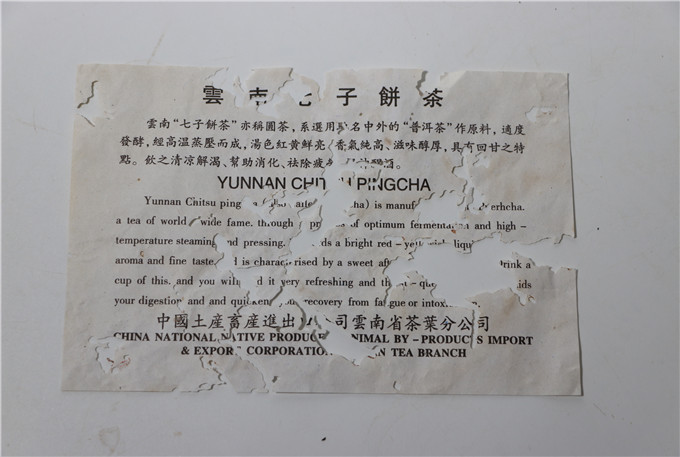 雲南七子餅茶
雲南“七子餅茶”亦稱圓茶，系選用 名中外的“普洱茶”作原料，適度
發酵，經高溫蒸壓而成，湯色紅黃鮮亮、香氣純高、滋味醇厚，具有回甘之特
點。飲之清凉解渴、幫助消化、祛除疲 酒。
YUNNAN PINGCHA
Yunnan Chitsu ping is
a tea of world wide fame. through of optimum fermentation and high –
temperature steaming and pressing. a bright red – 
aroma and fine taste. is characterised by a sweet drink a
cup of this. and you will it very refreshing and
your digestion and and quickens recovery from fatigue or
中國土產畜產進出 司雲南省茶葉分公司
CHINA NATIONAL NATIVE PRODUCE ANIMAL BY – PRODUCTS IMPORT
& EXPORT CORPORATION TEA BRANCH